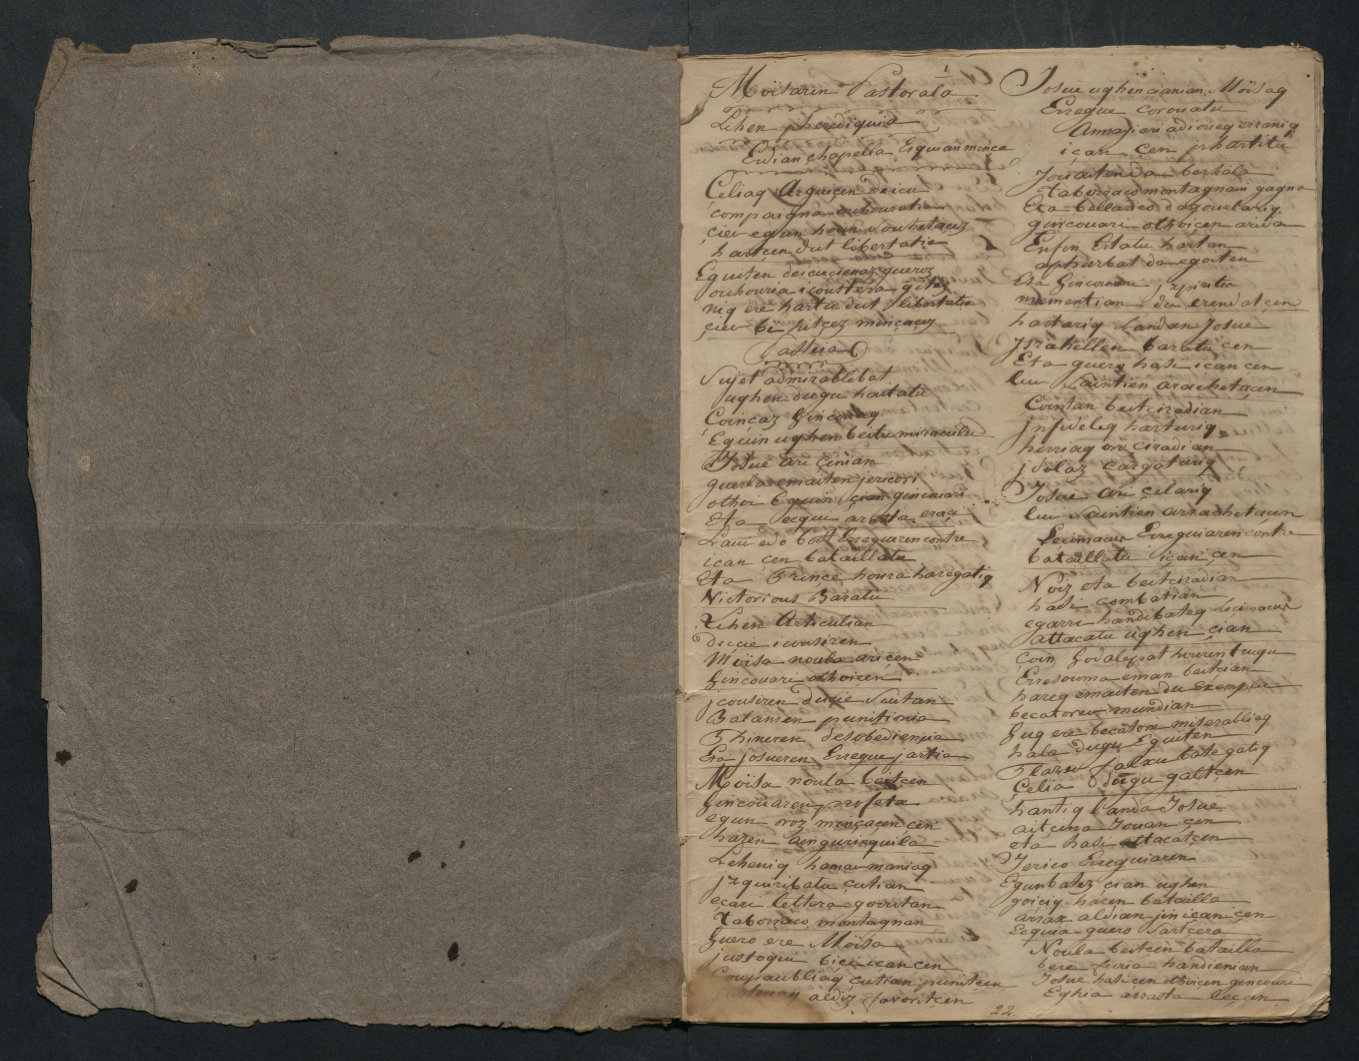 Moïsaren Pastorala
Lehen pherediquia
Erdian chapelia Esquian minça
Celiaq Arguitcen deicu
compaigna ouhouratia
çien egun houn souhetacez
hartcen dut libertatia
Eguiten deicienaz gueroz
ouhouria icoustera gitez
niq ere hartu dut libertatia
çien bi hitcez minçacez
Passeia
Sujet admirablebat
ughen dugu haitatu
Coinçaz Gincouaq
Eguin ughen beitu miraculu
Josue ari cenian
guerla emaiten jericori
othoi Eguin çian gincouari
Eta Ecqui arasta eraçi
Laur edo bost Erregueren contre
içan çen bataillatu
Eta Prince houra haregatiq
Victorious Baratu
Lehen Articulian
duçie icousiren
Moïsa noula ari cen
Gincouari othoicen
jcousiren duçie Suitan
Batansen punitionia
Phineren desobedienςia
Eta josueren Erregue jartia
Moïsa noula beitcen
Gincouaren profeta
egun oroz minçacen cen
haren Ainguriaquila
Leheniq hamar maniaq
jzquiribatu çutian
eçari lettera gorritan
Taborraco montagnan
Guero ere Moïsa
justoqui bici ican cen
Coupabliaq cutian punitcen
justouaq aldiz favoritcen
Josue ughen cianian Moïsaq
Erregue corouatu
Annayiari adioueg erraniq
içan çen phartitu
Jouaiten da berhala
Taborraco montagnaren gagna
Eta bellarico dagouelariq
gincouari othoicen ari da
Enfin Estatu hartan
aphurbat da egoiten
Eta Gincouari jzpiritia
momentian du erendatcen
hartariq Landan Josue
Jsrahellen baratu cen
Eta guero hasi ican cen
leur Saintien arachetacen
Cointan beitciradian
jnfideleq harturiq
herriaq oro ciradian
jdolaz cargaturiq
Josue ari çelariq
leur Saintien arrachetacen
Lecimaüs Erreguiaren contre
bataillatu içan çen
Noiz eta beitciradian
hasi combatian
egarri handibateq Lecimaüs
attacatu ughen çian
Çoin Godalezpat houren truqu
Erresouma eman beitcian
hareq emaiten du Exemplu
beccatoreu mundian
Guq ere becatore miserabliaq
hala dugu Eguiten
Plazer falxu bategatiq
Çelia dugu galtcen
hantiq landa Josue
aitcina Jouan cen
eta hasi attacatcen
Jerico Erreguiaren
Egunbatez cian ughen
goiciq haren batailla
arrax aldian jin ican cen
Ecquia guero Sartcera
Noula beitcen batailla
bere furia handienian
Josue hasi cen othoicen gincouari
Eghia arrasta leçan
22